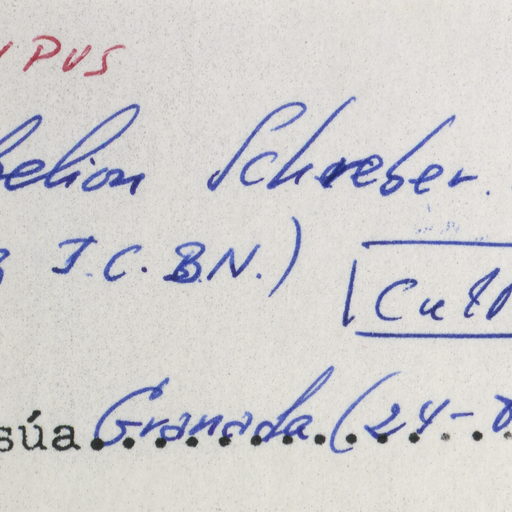 YPUS
belion Schreber.
I.C.B.N.)
Cult
súa Granada (24-8